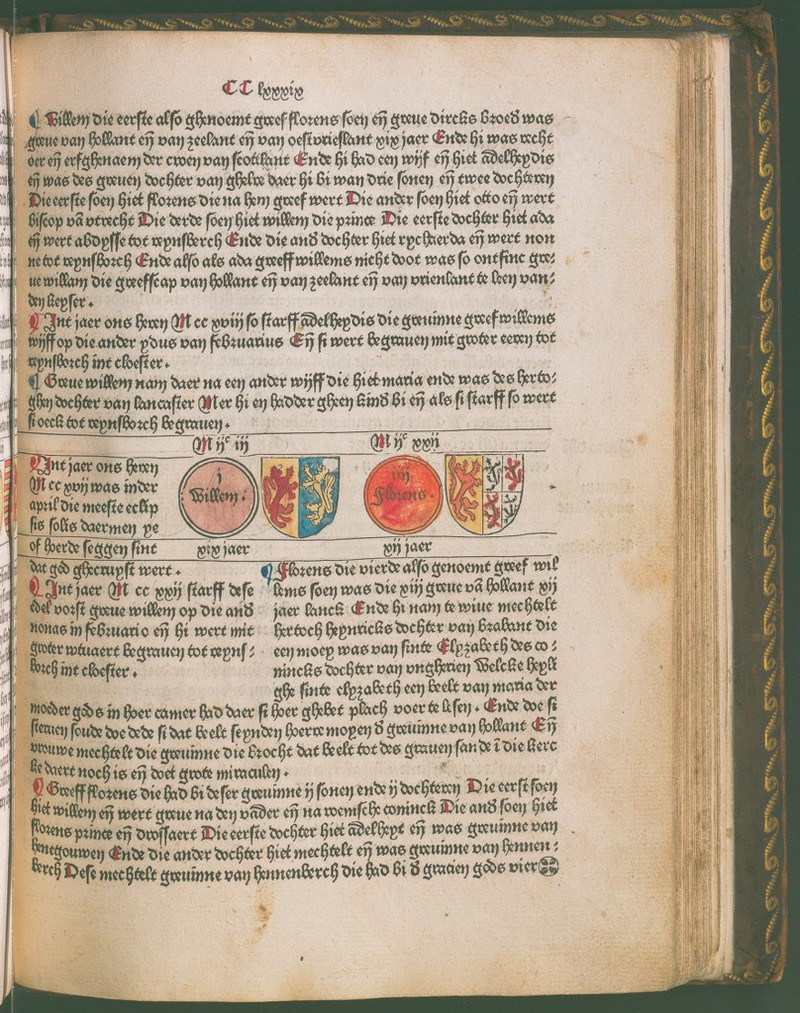 CC lxxxix
¶ Willem die eerste also ghenoemt greef florens soen eñ greue dircks broeð was
greue van hollant eñ van zeelant eñ van oestvrieslant xix jaer Ende hi was recht
oer eñ erfghenaem der croen van scotthant Ende hi had een wijf eñ hiet adelheydis
eñ was des greuen dochter van ghelre daer hi bi wan drie sonen eñ twee dochteren
Die eerste soen hiet florens die na hem greef wert Die ander soen hiet otto eñ wert
biscop vā vtrecht Die derde soen hiet willem die prince Die eerste dochter hiet ada
eñ wert abdysse tot reynsberch Ende die anð dochter hiet rycharda eñ wert non
ne tot reynsborch Ende also als ada greeff willems nicht doot was so ontfinc gre⸗
ue willam die greefscap van hollant eñ van zeelant eñ van vrienlant te leen van⸗
den keyser .
¶ Int jaer ons heren M cc xviij so starff adelheydis die greuinne greef willems
wijff op die ander ydus van februarius Eñ si wert begrauen mit groter eeren tot
reynsborch int cloester .
¶ Greue willem nam daer na een ander wijff die hiet maria ende was des herto⸗
ghen dochter van lancaster Mer hi en hadder gheen kinð bi eñ als si starff so wert
si oeck tot reynsborch begrauen .
M ijᶜ iij M ijᶜ xxij
¶ Int jaer ons heren
M cc xvij was inder
april die meeste eclip
sis solis daermen ye
of hoerde segghen sint
j
Willem .
iiij
Florens .
xix jaer xij jaer
dat god ghecruyst wert .
¶ Int jaer M cc xxij starff dese
edel vorst greue willem op die anð
nonas in februario eñ hi wert mit
groter wtuaert begrauen tot reyns⸗
borch int cloester .
¶ Florens die vierde also genoemt greef wil
lems soen was die xiij greue vā hollant xij
jaer lanck Ende hi nam te wiue mechtelt
hertoch heynricks dochter van brabant die
een moey was van sinte Elyzabeth des co⸗
nincks dochter van vngherien Welcke heyli
ghe sinte elyzabeth een beelt van maria der
moeder gods in hoer camer had daer si hoer ghebet plach voer te lesen . Ende doe si
steruen soude doe dede si dat beelt seynden hoerre moyen ð greuinne van hollant Eñ
vrouwe mechtelt die greuinne die brocht dat beelt tot des grauen sande ī die kerc
ke daert noch is eñ doet grote miraculen .
¶ Greeff florens die had bi deser greuinne ij sonen ende ij dochteren Die eerst soen
hiet willem eñ wert greue na den vāder eñ na roemsche coninck Die anð soen hiet
florens prince eñ drossaert Die eerste dochter hiet adelheyt eñ was greuinne van
henegouwen Ende die ander dochter hiet mechtelt eñ was greuinne van hennen⸗
berch Dese mechtelt greuinne van hennenberch die had bi ð gracien gods vier